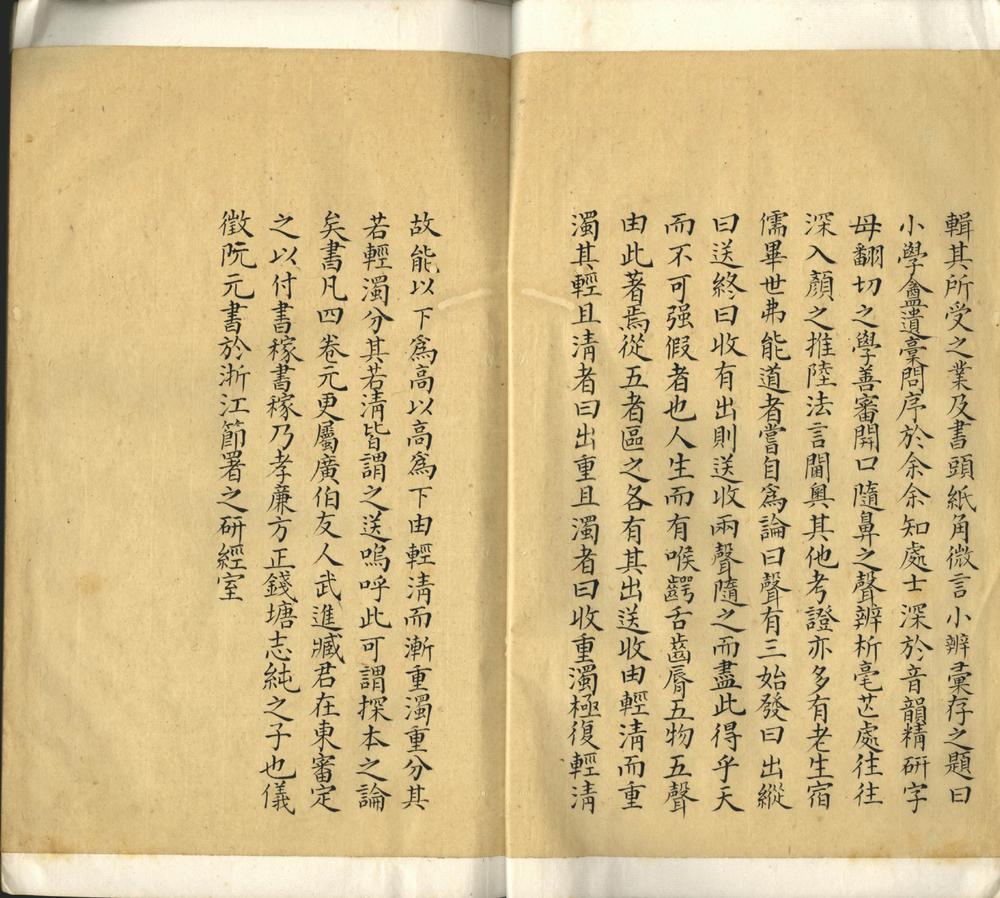 輯其所受之業及書頭紙角微言小辨彙存之題曰
小學盦遺稾問序於余余知處士深於音韻精研字
母翻切之學善審開口隨鼻之聲辨析毫芒處往往
深入顏之推陸法言閫奧其他考證亦多有老生宿
儒畢世弗能道者嘗自為論曰聲有三始發曰出縱
曰送終曰收有出則送收兩聲隨之而盡此得乎天
而不可强假者也人生而有喉齶舌齒脣五物五聲
由此著焉從五者區之各有其出送收由輕清而重
濁其輕且清者曰出重且濁者曰收重濁極復輕清
故能以下為高以高為下由輕清而漸重濁重分其
若輕濁分其若清皆謂之送嗚呼此可謂探本之論
矣書凡四卷元更屬廣伯友人武進臧君在東審定
之以付書稼書稼乃孝廉方正錢塘志純之子也儀
徵阮元書於浙江節署之研經室